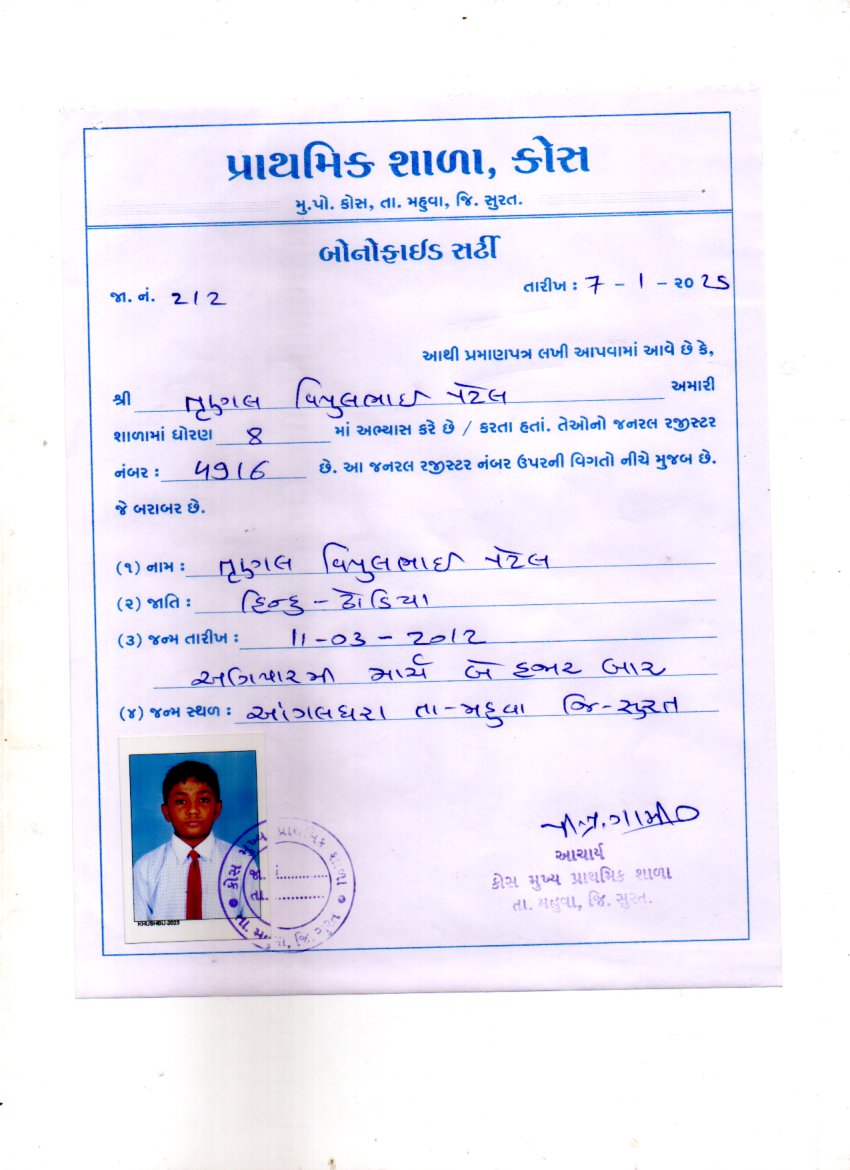 પ્રાથમિક શાળા, કોસ
મુ.પો. કોસ, તા. મહુવા, જિ. સુરત.
બોનોફાઈડ સર્ટી
જા. નં. 212
તારીખ : 7 - 1 - ૨૦ 25
આથી પ્રમાણપત્ર લખી આપવામાં આવે છે કે,
શ્રી વિપુલભાઈ પટેલ અમારી
શાળામાં ધોરણ 8 માં અભ્યાસ કરે છે / કરતા હતાં. તેઓનો જનરલ રજીસ્ટર
નંબર : 4916 છે. આ જનરલ રજીસ્ટર નંબર ઉપરની વિગતો નીચે મુજબ છે.
જે બરાબર છે.
(૧) નામ : વિપુલભાઈ પટેલ
(૨) જાતિ : હિન્દુ - ઢોડિયા
(૩) જન્મ તારીખ : 11-03-2012
અગિયારમી માર્ચ બે હજાર બાર
(૪) જન્મ સ્થળ : આંગલધરા તા-મહુવા જિ-સુરત
આચાર્ય
કોસ મુખ્ય પ્રાથમિક શાળા
તા. મહુવા, જિ. સુરત.
KHUSHBU-2023
કોસ મુખ્ય પ્રાથમિક શાળા